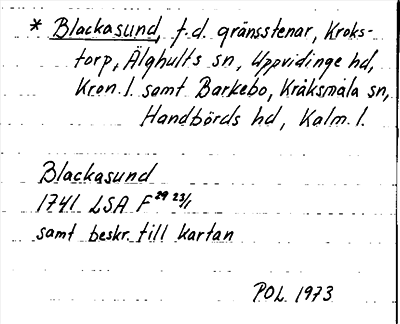 * Blackasund, f.d. gränsstenar, Kroks-
torp, Älghults sn, Uppvidinge hd,
Kron. l. samt Barkebo, Kråksmåla sn,
Handbörds hd, Kalm. l.
Blackasund
1741 LSA F 29 23/1
samt beskr. till kartan
POL 1973